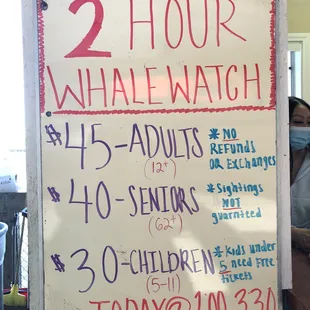 2 HOUR
WHALE WATCH
$45-ADULTS
(12+)
* NO
REFUNDS
OR EXCHANGES
$40-SENIORS
(62+)
* Sightings
NOT
guarnteed
$30-CHILDREN
(5-11)
* Kids under
5 need Free
tickets
TODAY@ 1:00, 3:30